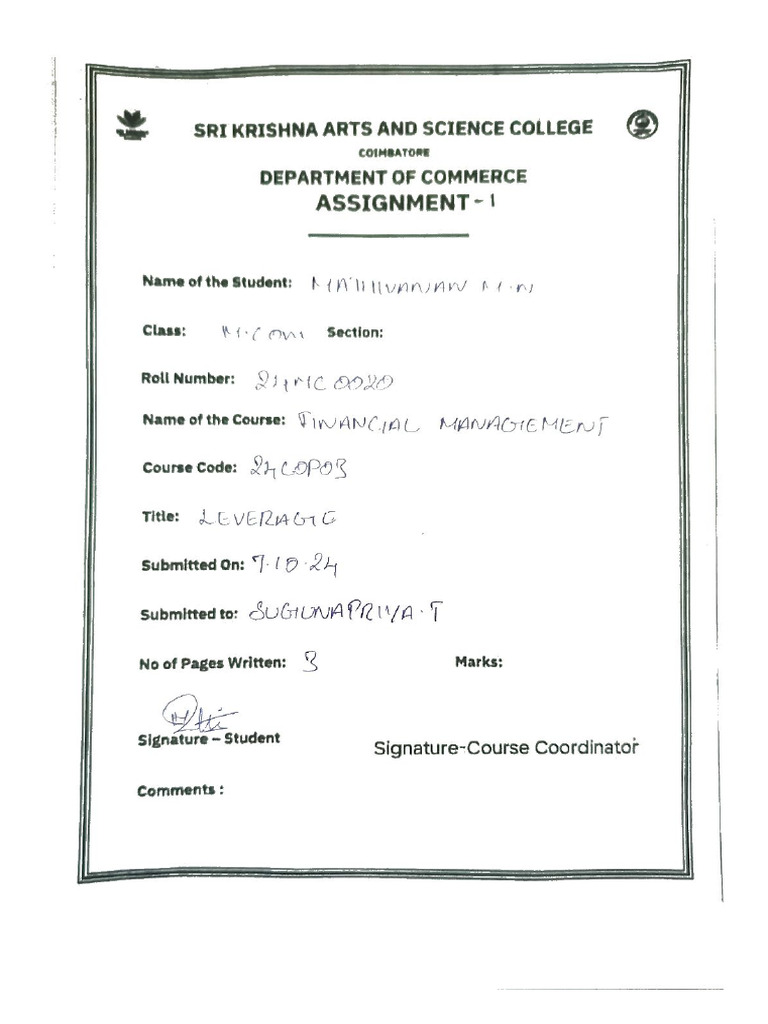 SRI KRISHNA ARTS AND SCIENCE COLLEGE
COIMBATORE
DEPARTMENT OF COMMERCE
ASSIGNMENT - 1
Name of the Student: MATHIVANAN M.N
Class: M.COM Section:
Roll Number: 24MC0020
Name of the Course: FINANCIAL MANAGEMENT
Course Code: 24COP03
Title: LEVERAGE
Submitted On: 7.10.24
Submitted to: SUGUNAPRIYA.T
No of Pages Written: 3 Marks:
Signature – Student
Signature-Course Coordinator
Comments :